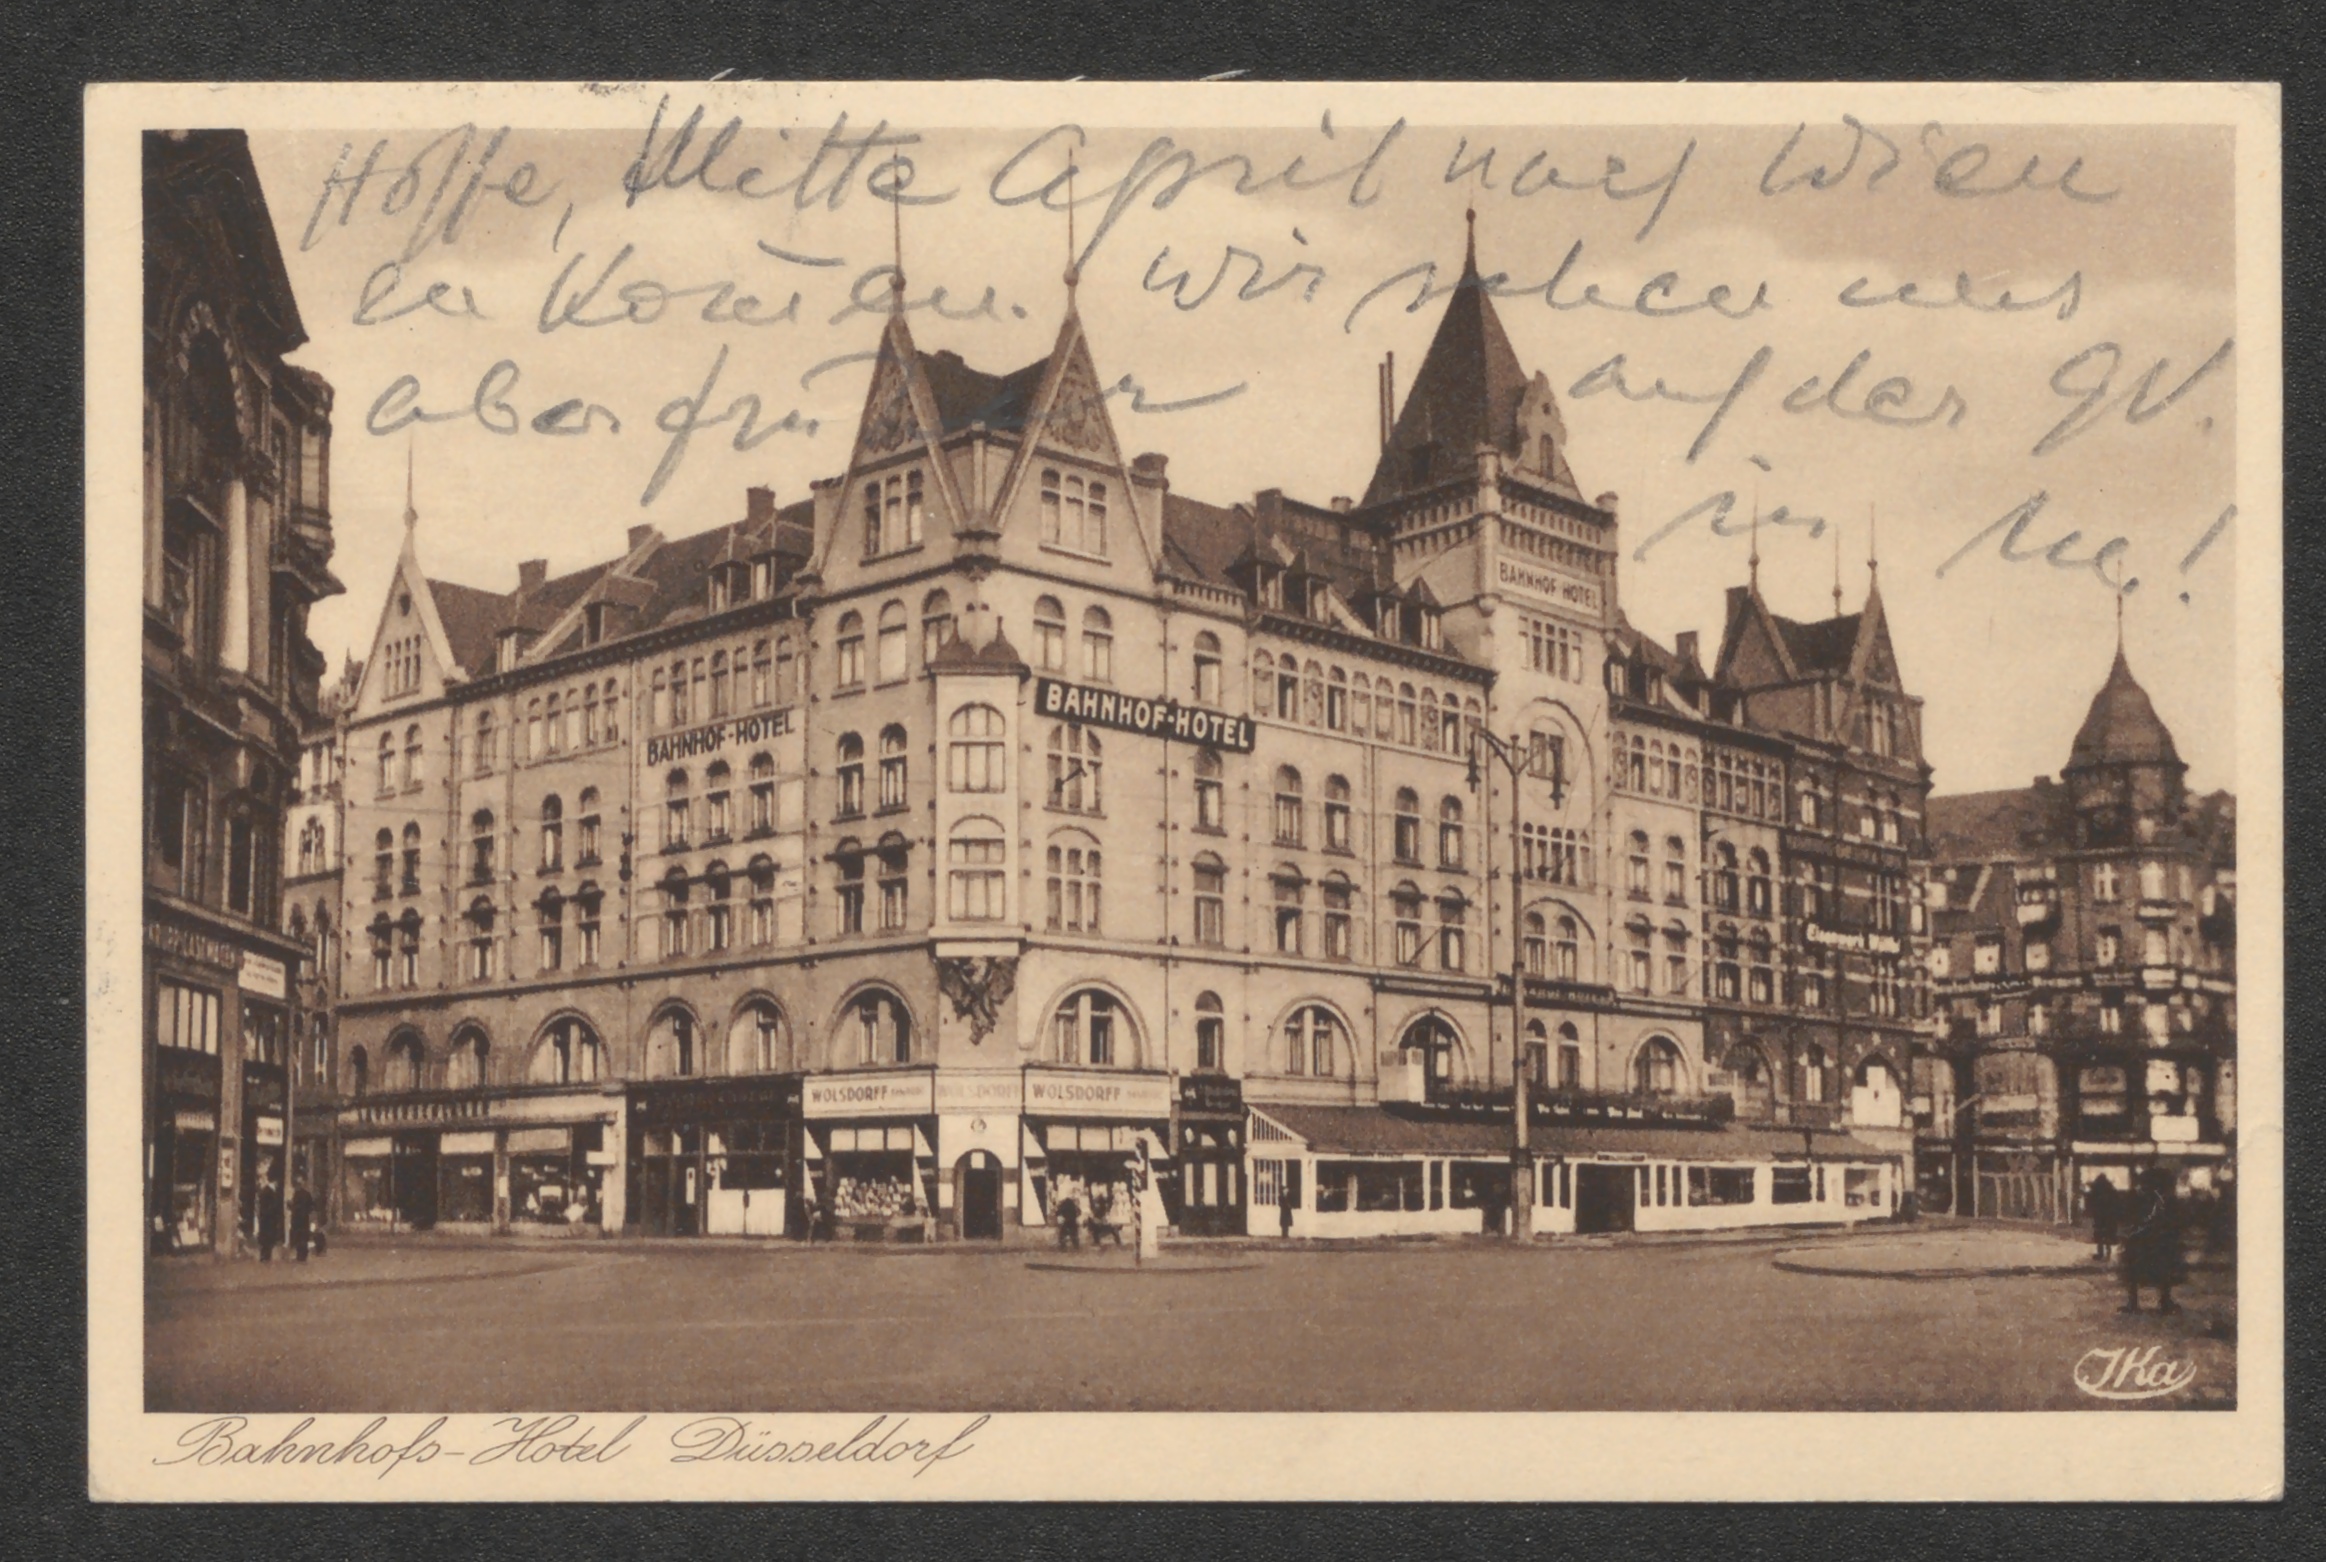 Hoffe, Mitte April nach Wien
zu kom̄en. Wir sehen uns
aber früher auf der GV.
in
BAHNHOF-HOTEL
BAHNHOF-HOTEL
BAHNHOF-HOTEL
WOLSDORFF
WOLSDORFF
WOLSDORFF
JKa
Bahnhofs-Hotel Düsseldorf